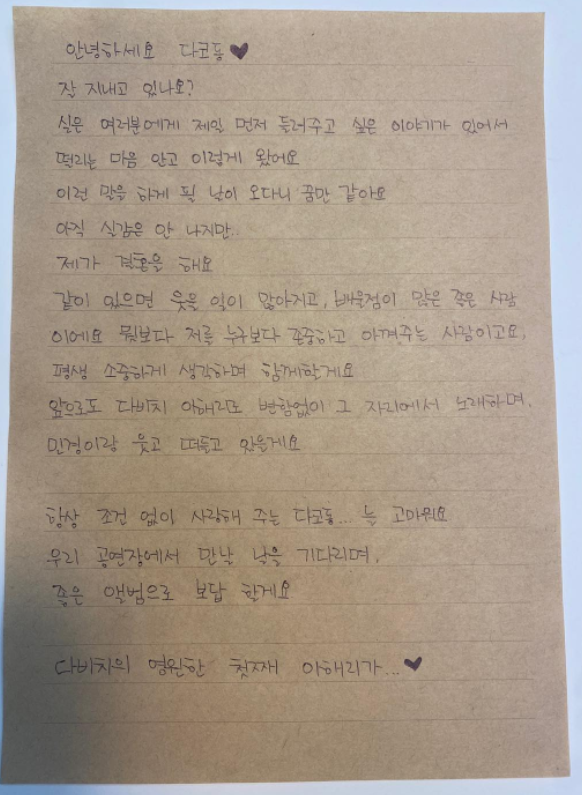 안녕하세요 다코동♥
잘 지내고 있나요?
실은 여러분에게 제일 먼저 들려주고 싶은 이야기가 있어서
떨리는 마음 안고 이렇게 왔어요
이런 말을 하게 될 날이 오다니 꿈만 같아요
아직 실감은 안 나지만..
제가 결혼을 해요
같이 있으면 웃을 일이 많아지고, 배울점이 많은 좋은 사람
이에요 뭣보다 저를 누구보다 존중하고 아껴주는 사람이고요,
평생 소중하게 생각하며 함께할게요
앞으로도 다비치 이해리로 변함없이 그 자리에서 노래하며,
민경이랑 웃고 떠들고 있을게요
항상 조건 없이 사랑해 주는 다코동... 늘 고마워요
우리 공연장에서 만날 날을 기다리며,
좋은 앨범으로 보답 할게요
다비치의 영원한 첫째 이해리가...♥